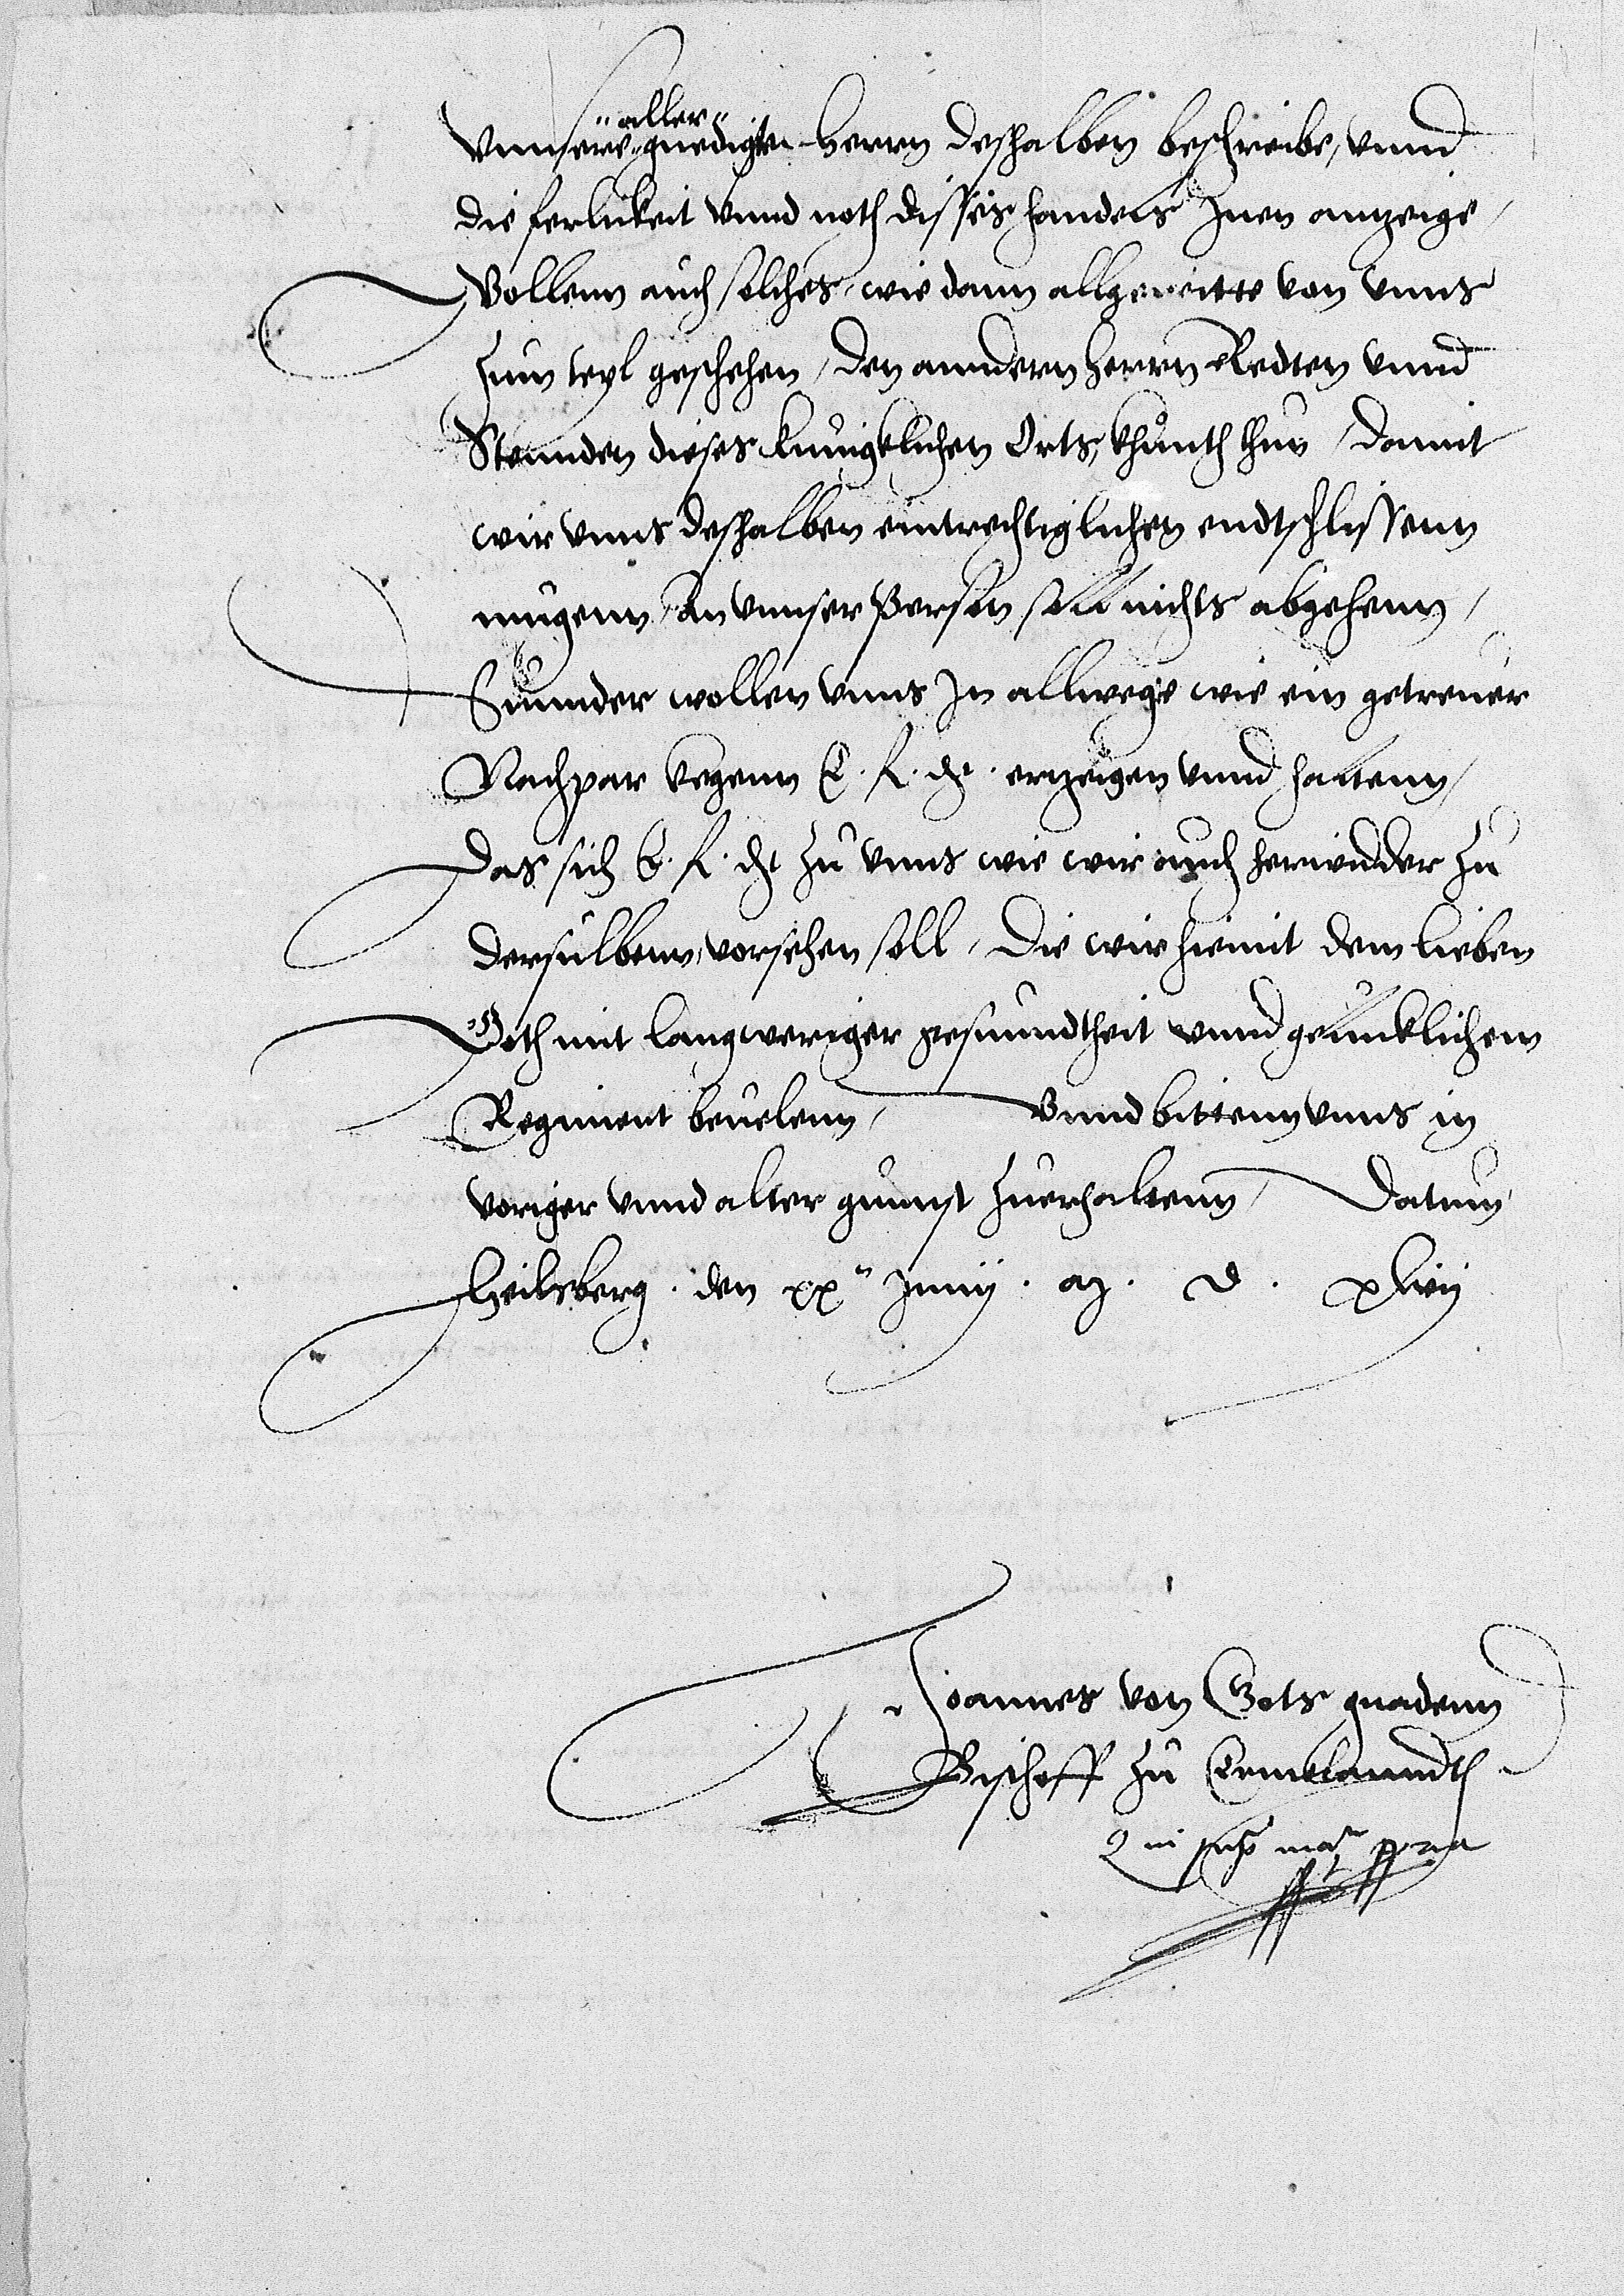 aller
vnnsere gnedigste Herrn deshalben beschreibe, vnnd
die ferlickeit vnnd noth disses handels Inen anzeige,
Wollenn auch solches, wie dann allgereitte von vnns
zum teyl geschehen, den anndern herrn Redten vnnd
Stennden dieses kunigklichen Orts, khunth thun, damit
wir vnns deshalben eintrechtiglichen endtschlissenn
mugenn, An vnnser Person soll nichts abgehenn,
Sunnder wollen vnns In allwege wie ein getreuer
Nachpar kegenn E. f. d. erzeigen vnnd haltenn,
Das sich E. f. d. zu vnns wie wir auch herwidder zu
dersulbenn, vorsehen soll, Die wir hiemit dem lieben
Goth mit langweriger gesundtheit vnnd gelucklichem
Regiment beuelenn, Vnnd bittenn vnns in
voriger vnnd alter gunnst zuerhaltenn, Datum
Heilsberg. den xx Junij. M. D. xlvij
Joannes von Gots gnadenn
Bischoff zu Ermelanndth